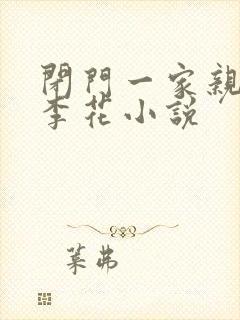 閉門一家親
李花小説
葉弗